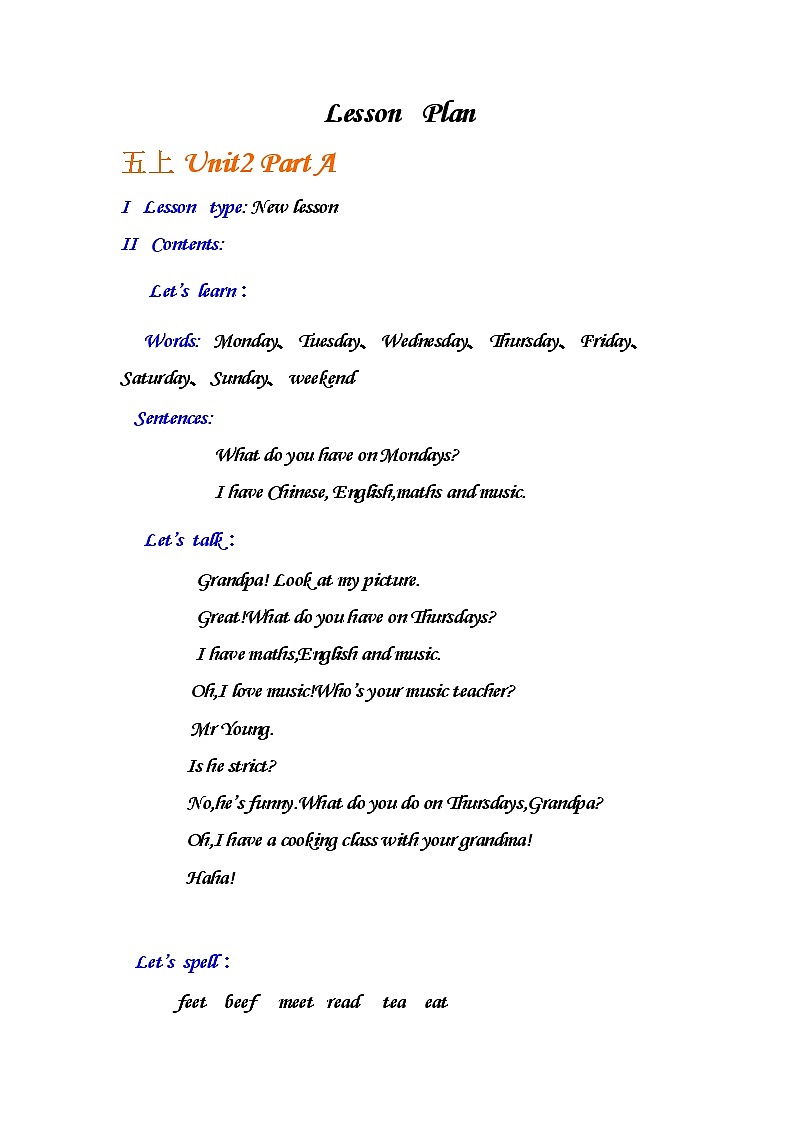 Lesson Plan
五上 Unit2 Part A
I Lesson type: New lesson
II Contents:
Let's learn：
Words: Monday、Tuesday、Wednesday、Thursday、Friday、
Saturday、Sunday、weekend
Sentences:
What do you have on Mondays?
I have Chinese, English,maths and music.
Let's talk：
Grandpa! Look at my picture.
Great!What do you have on Thursdays?
I have maths,English and music.
Oh,I love music!Who's your music teacher?
Mr Young.
Is he strict?
No,he's funny.What do you do on Thursdays,Grandpa?
Oh,I have a cooking class with your grandma!
Haha!
Let's spell：
feet beef meet read tea eat